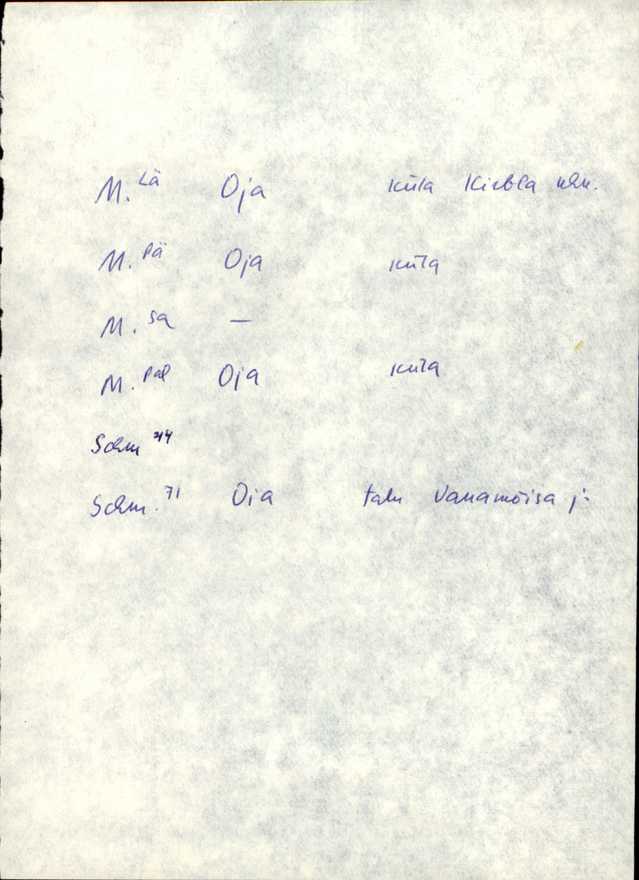 M. Lä Oja küla Kirbla khn.
M. Pä Oja küla
M. Sa —
M. Pal Oja küla
Schm 44
Schm. 71 Oja talu Vanamõisa j: